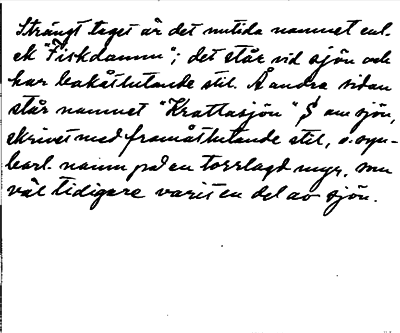 Strängt taget är det nutida namnet enl.
ek "Fiskdamm"; det står vid sjön och
har bakåtlutande stil. Å andra sidan
står namnet "Krattasjön" § om sjön,
skrivet med framåtlutande stil, o. syn-
barl. namn på en torrlagd myr, som
väl tidigare varit en del av sjön.